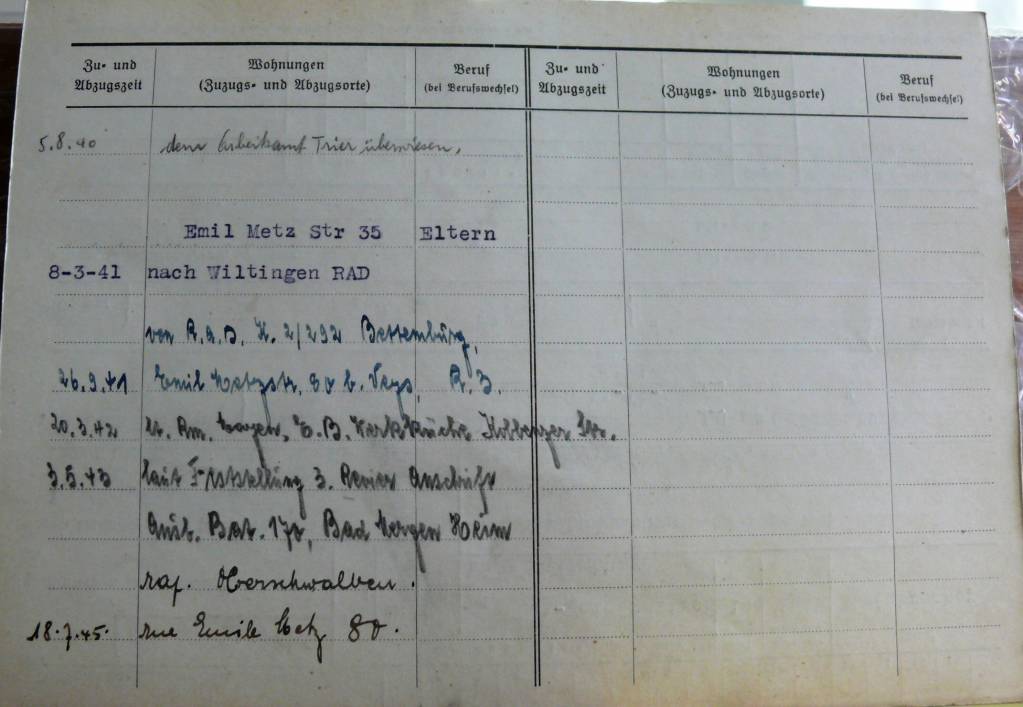 Zu- und Abzugszeit
Wohnungen (Zuzugs- und Abzugsorte)
Beruf (bei Berufswechsel)
Zu- und Abzugszeit
Wohnungen (Zuzugs- und Abzugsorte)
Beruf (bei Berufswechsel)
5.8.40 dem Arbeitsamt Trier überwiesen.
Emil Metz Str 35 Eltern
8-3-41 nach Wiltingen RAD
von R.a.D. K. 2/292 Bettemburg,
26.9.41 Emil Metzstr. 80 b. R.D.
20.3.42 E.B. Werkküche Koblenzer Str.
3.5.43 laut Feststellung 3. Revier Anschrift
Bat. Bad Mergen Heim
rap. Oberschwalben.
18.7.45. rue Emile Metz 80.